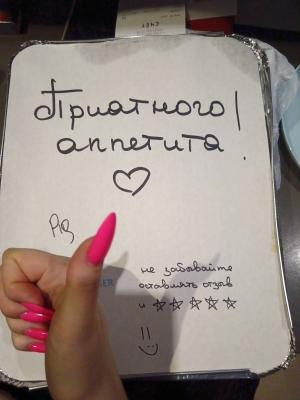 СЧЕТ
Приатного!
аппетита
♡
не забывайте
оставлять отзыв
и ☆☆☆☆☆